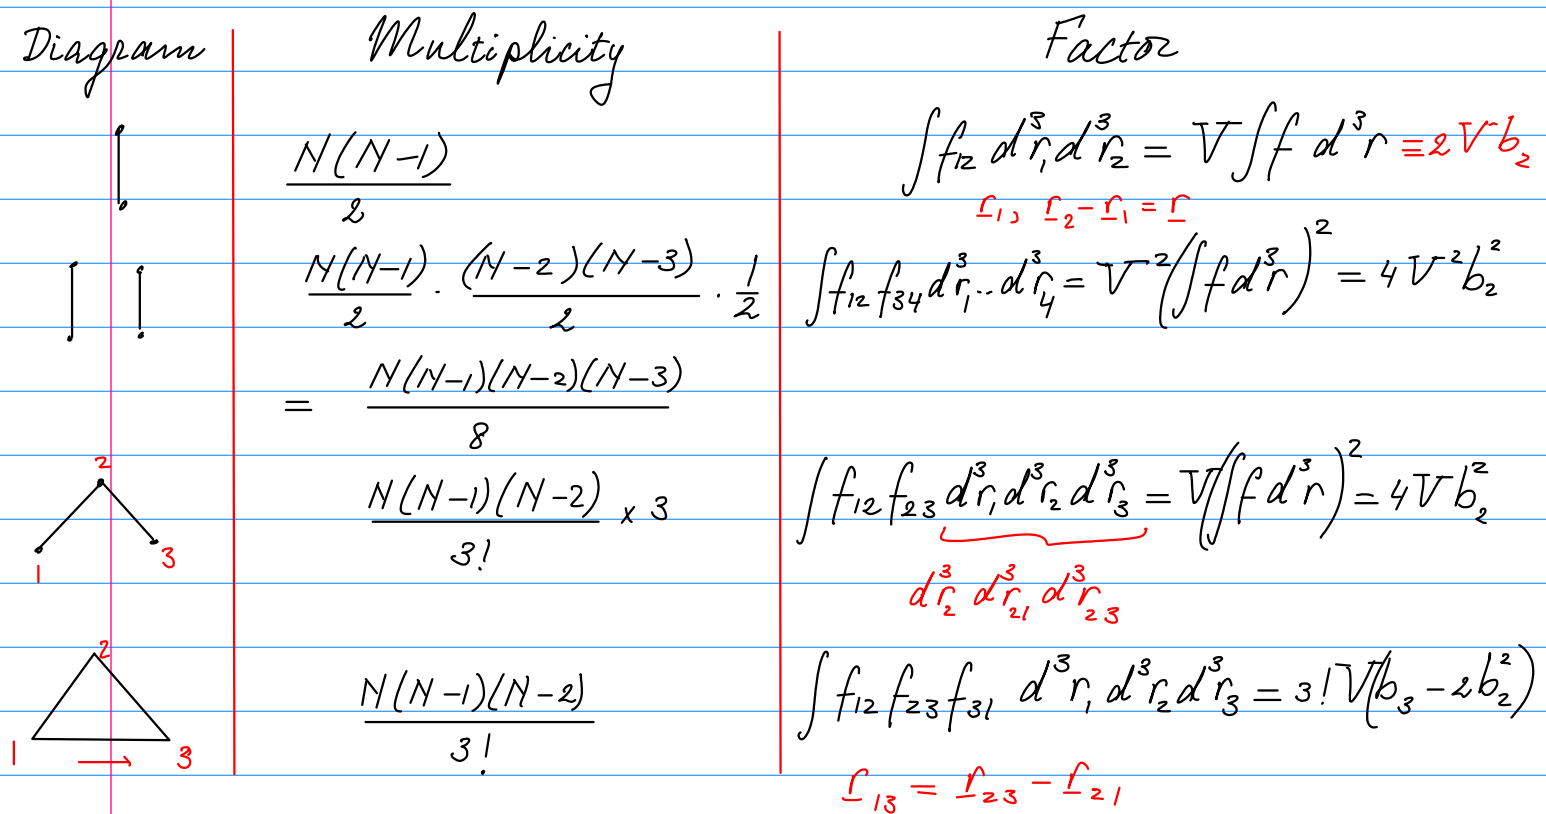 Diagram Multiplicity Factor
N(N-1)/2 ∫f₁₂ d³r₁d³r₂ = V∫f d³r ≡ 2Vb₂
r₁, r₂-r₁ = r
N(N-1)/2 · (N-2)(N-3)/2 · 1/2 ∫f₁₂f₃₄d³r₁..d³r₄ = V²(∫fd³r)² = 4V²b₂²
= N(N-1)(N-2)(N-3)/8
2
1 3
N(N-1)(N-2)/3! x 3 ∫f₁₂f₂₃d³r₁d³r₂d³r₃ = V(∫fd³r)² = 4Vb₂²
d³r₂ d³r₂₁ d³r₂₃
2
1 → 3
N(N-1)(N-2)/3! ∫f₁₂f₂₃f₃₁ d³r₁d³r₂d³r₃ = 3!V(b₃-2b₂²)
r₁₃ = r₂₃ - r₂₁